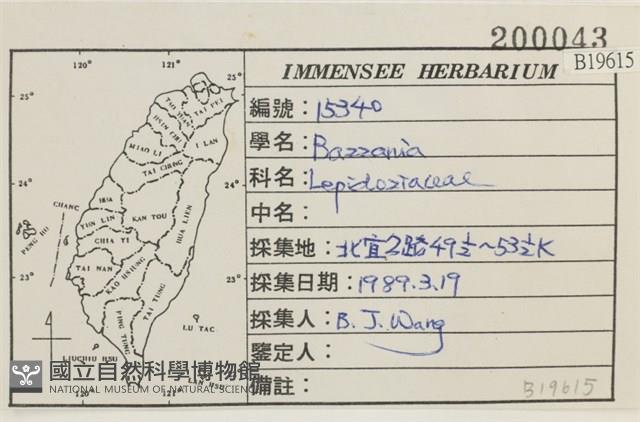 200043
B19615
IMMENSEE HERBARIUM
編號：15340
學名：Bazzania
科名：Lepidoziaceae
中名：
採集地：北宜公路49½~53½K
採集日期：1989.3.19
採集人：B. J. Wang
鑒定人：
備註：
B19615
120° 121°
25° 25°
TAI PEI
I LAN
MIAO LI
TAI CHUNG
24° 24°
CHANG
HUA
NAN TOU
HUA LIEN
YUN LIN
PENG HU
CHIA YI
23° 23°
TAI NAN
KAO HSIUNG
TAI TUNG
PING TUNG
LU TAO
LIUCHIU HSU
LAN HSU
120° 121°
國立自然科學博物館
NATIONAL MUSEUM OF NATURAL SCIENCE